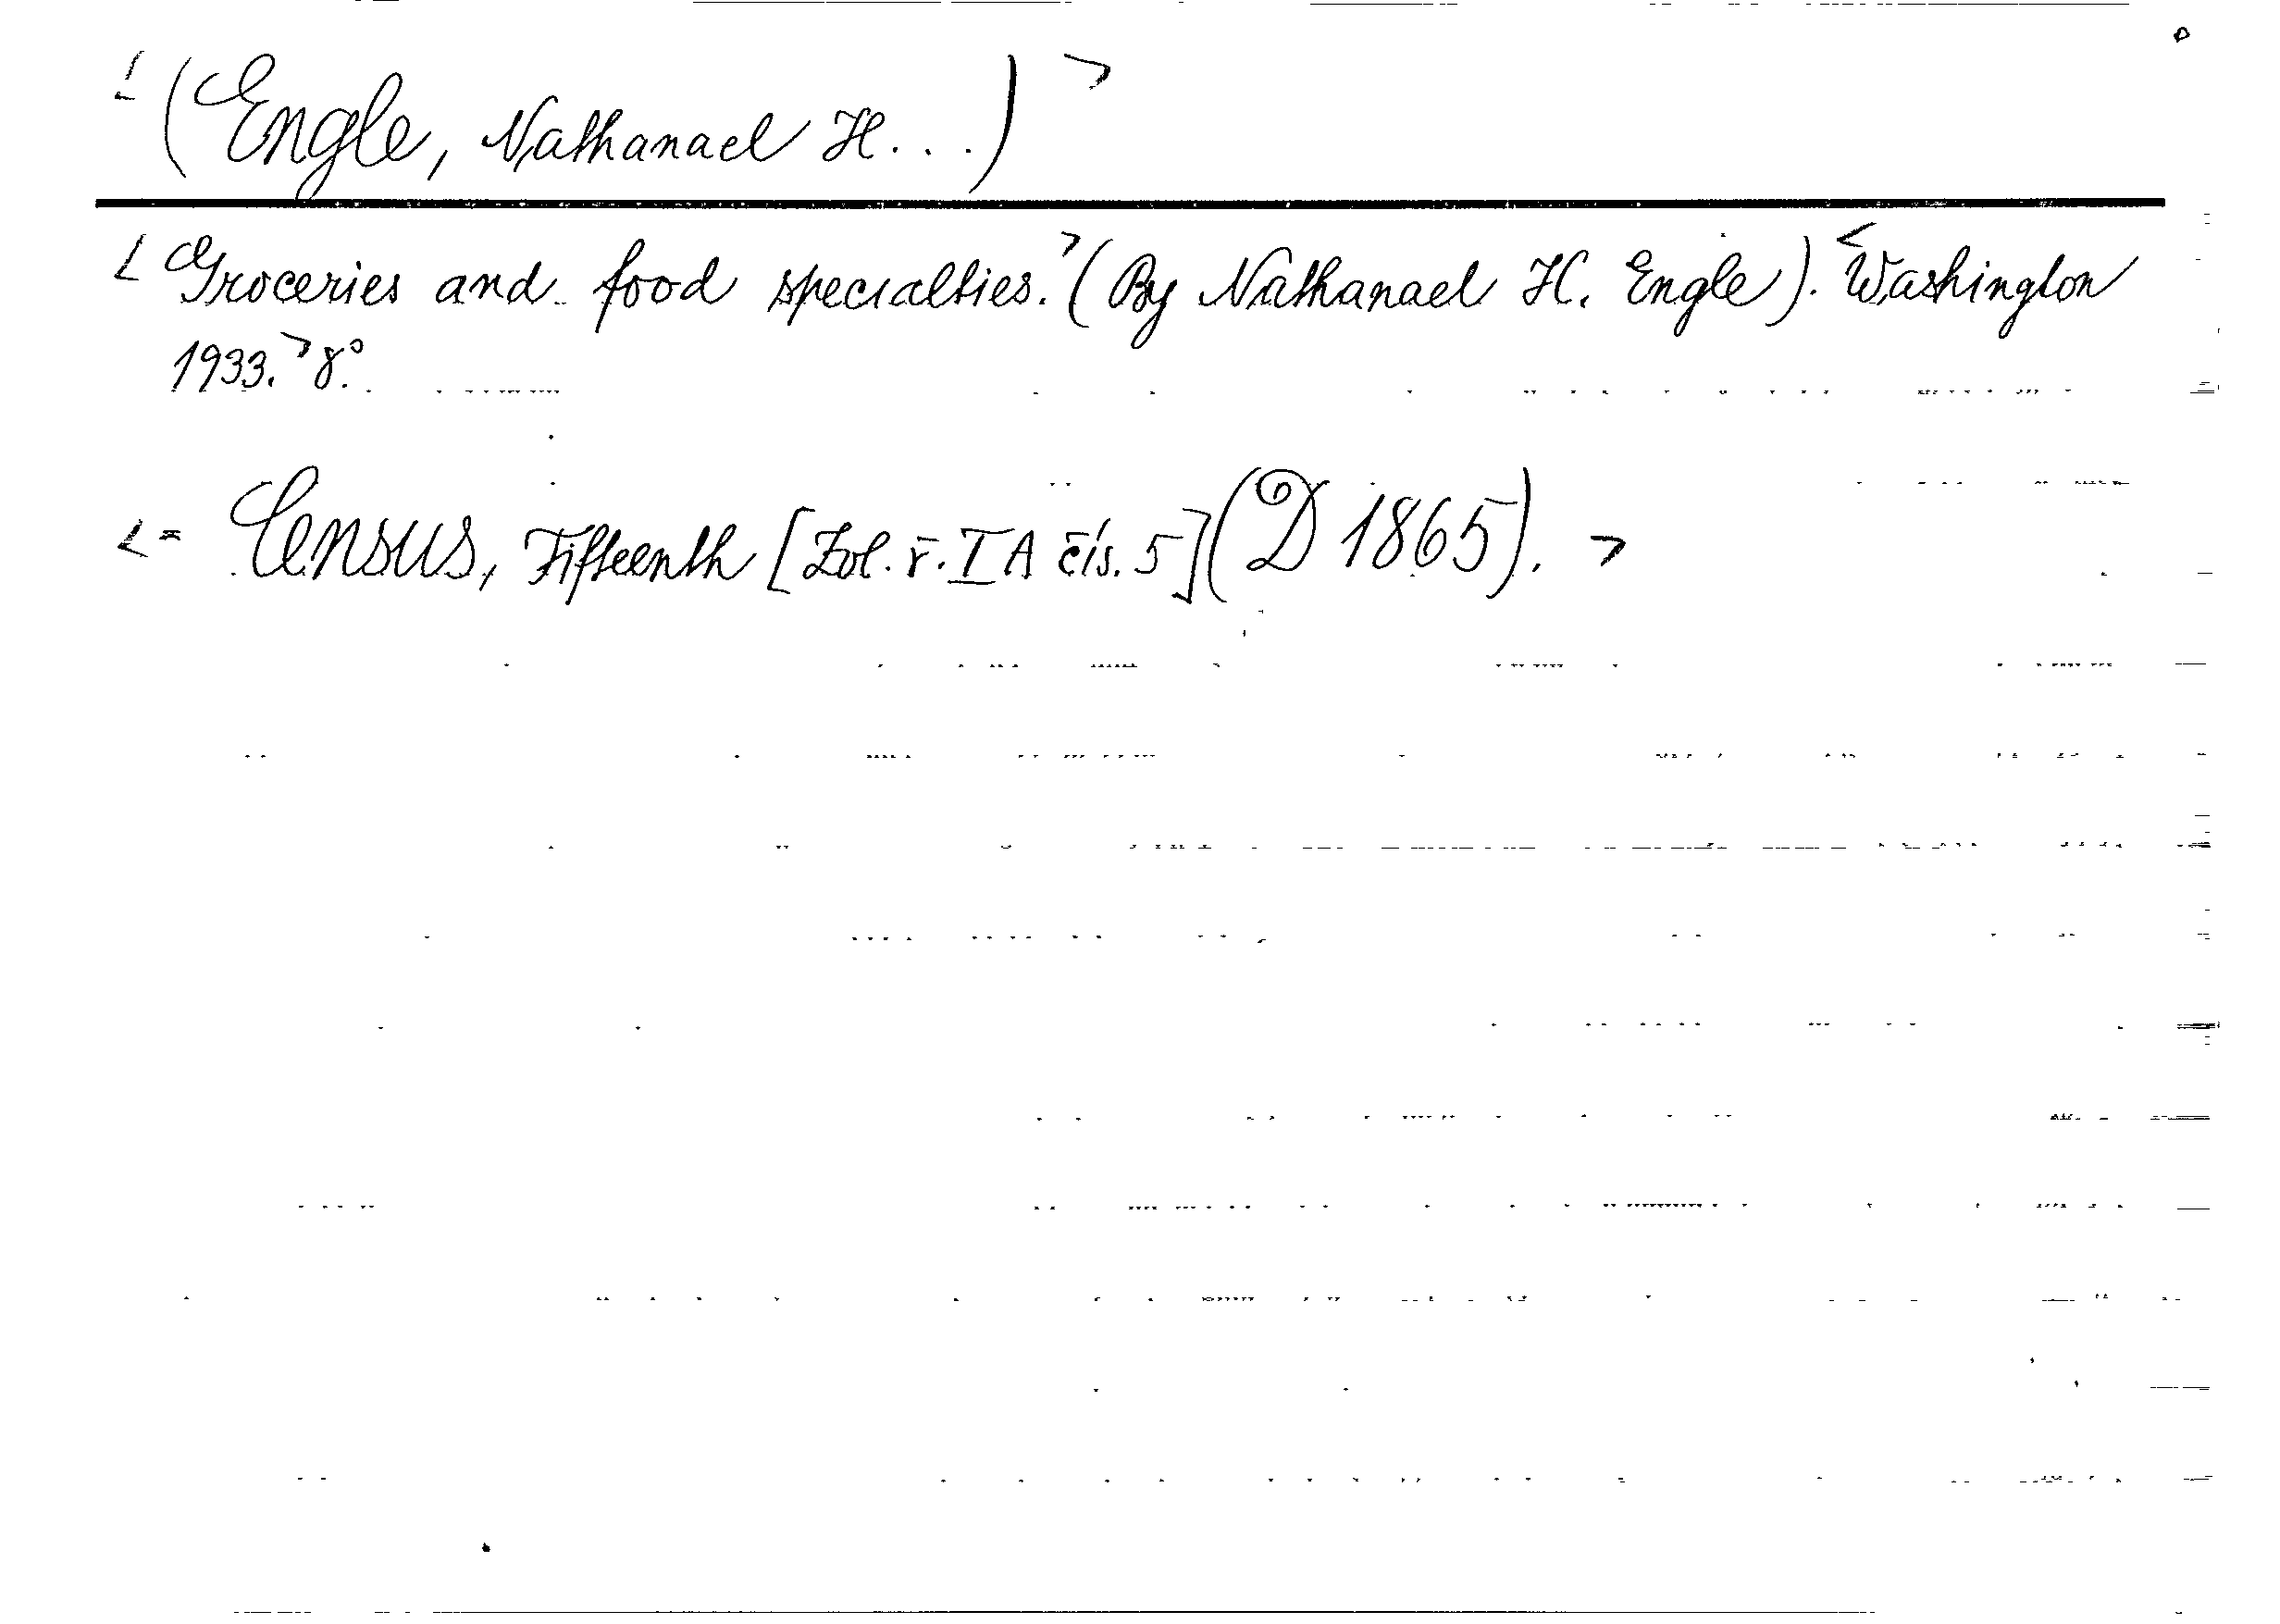 <(Engle, Nathanael H...)>
<Groceries and food specialties.>(By Nathanael H. Engle). <Washington
1933.> 8°.
<= Census, Fifteenth [Zvl. ř. I A čís. 5](D 1865).>